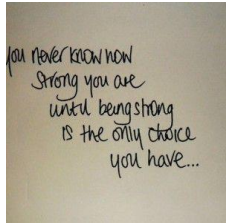 you never know how
strong you are
until being strong
is the only choice
you have...